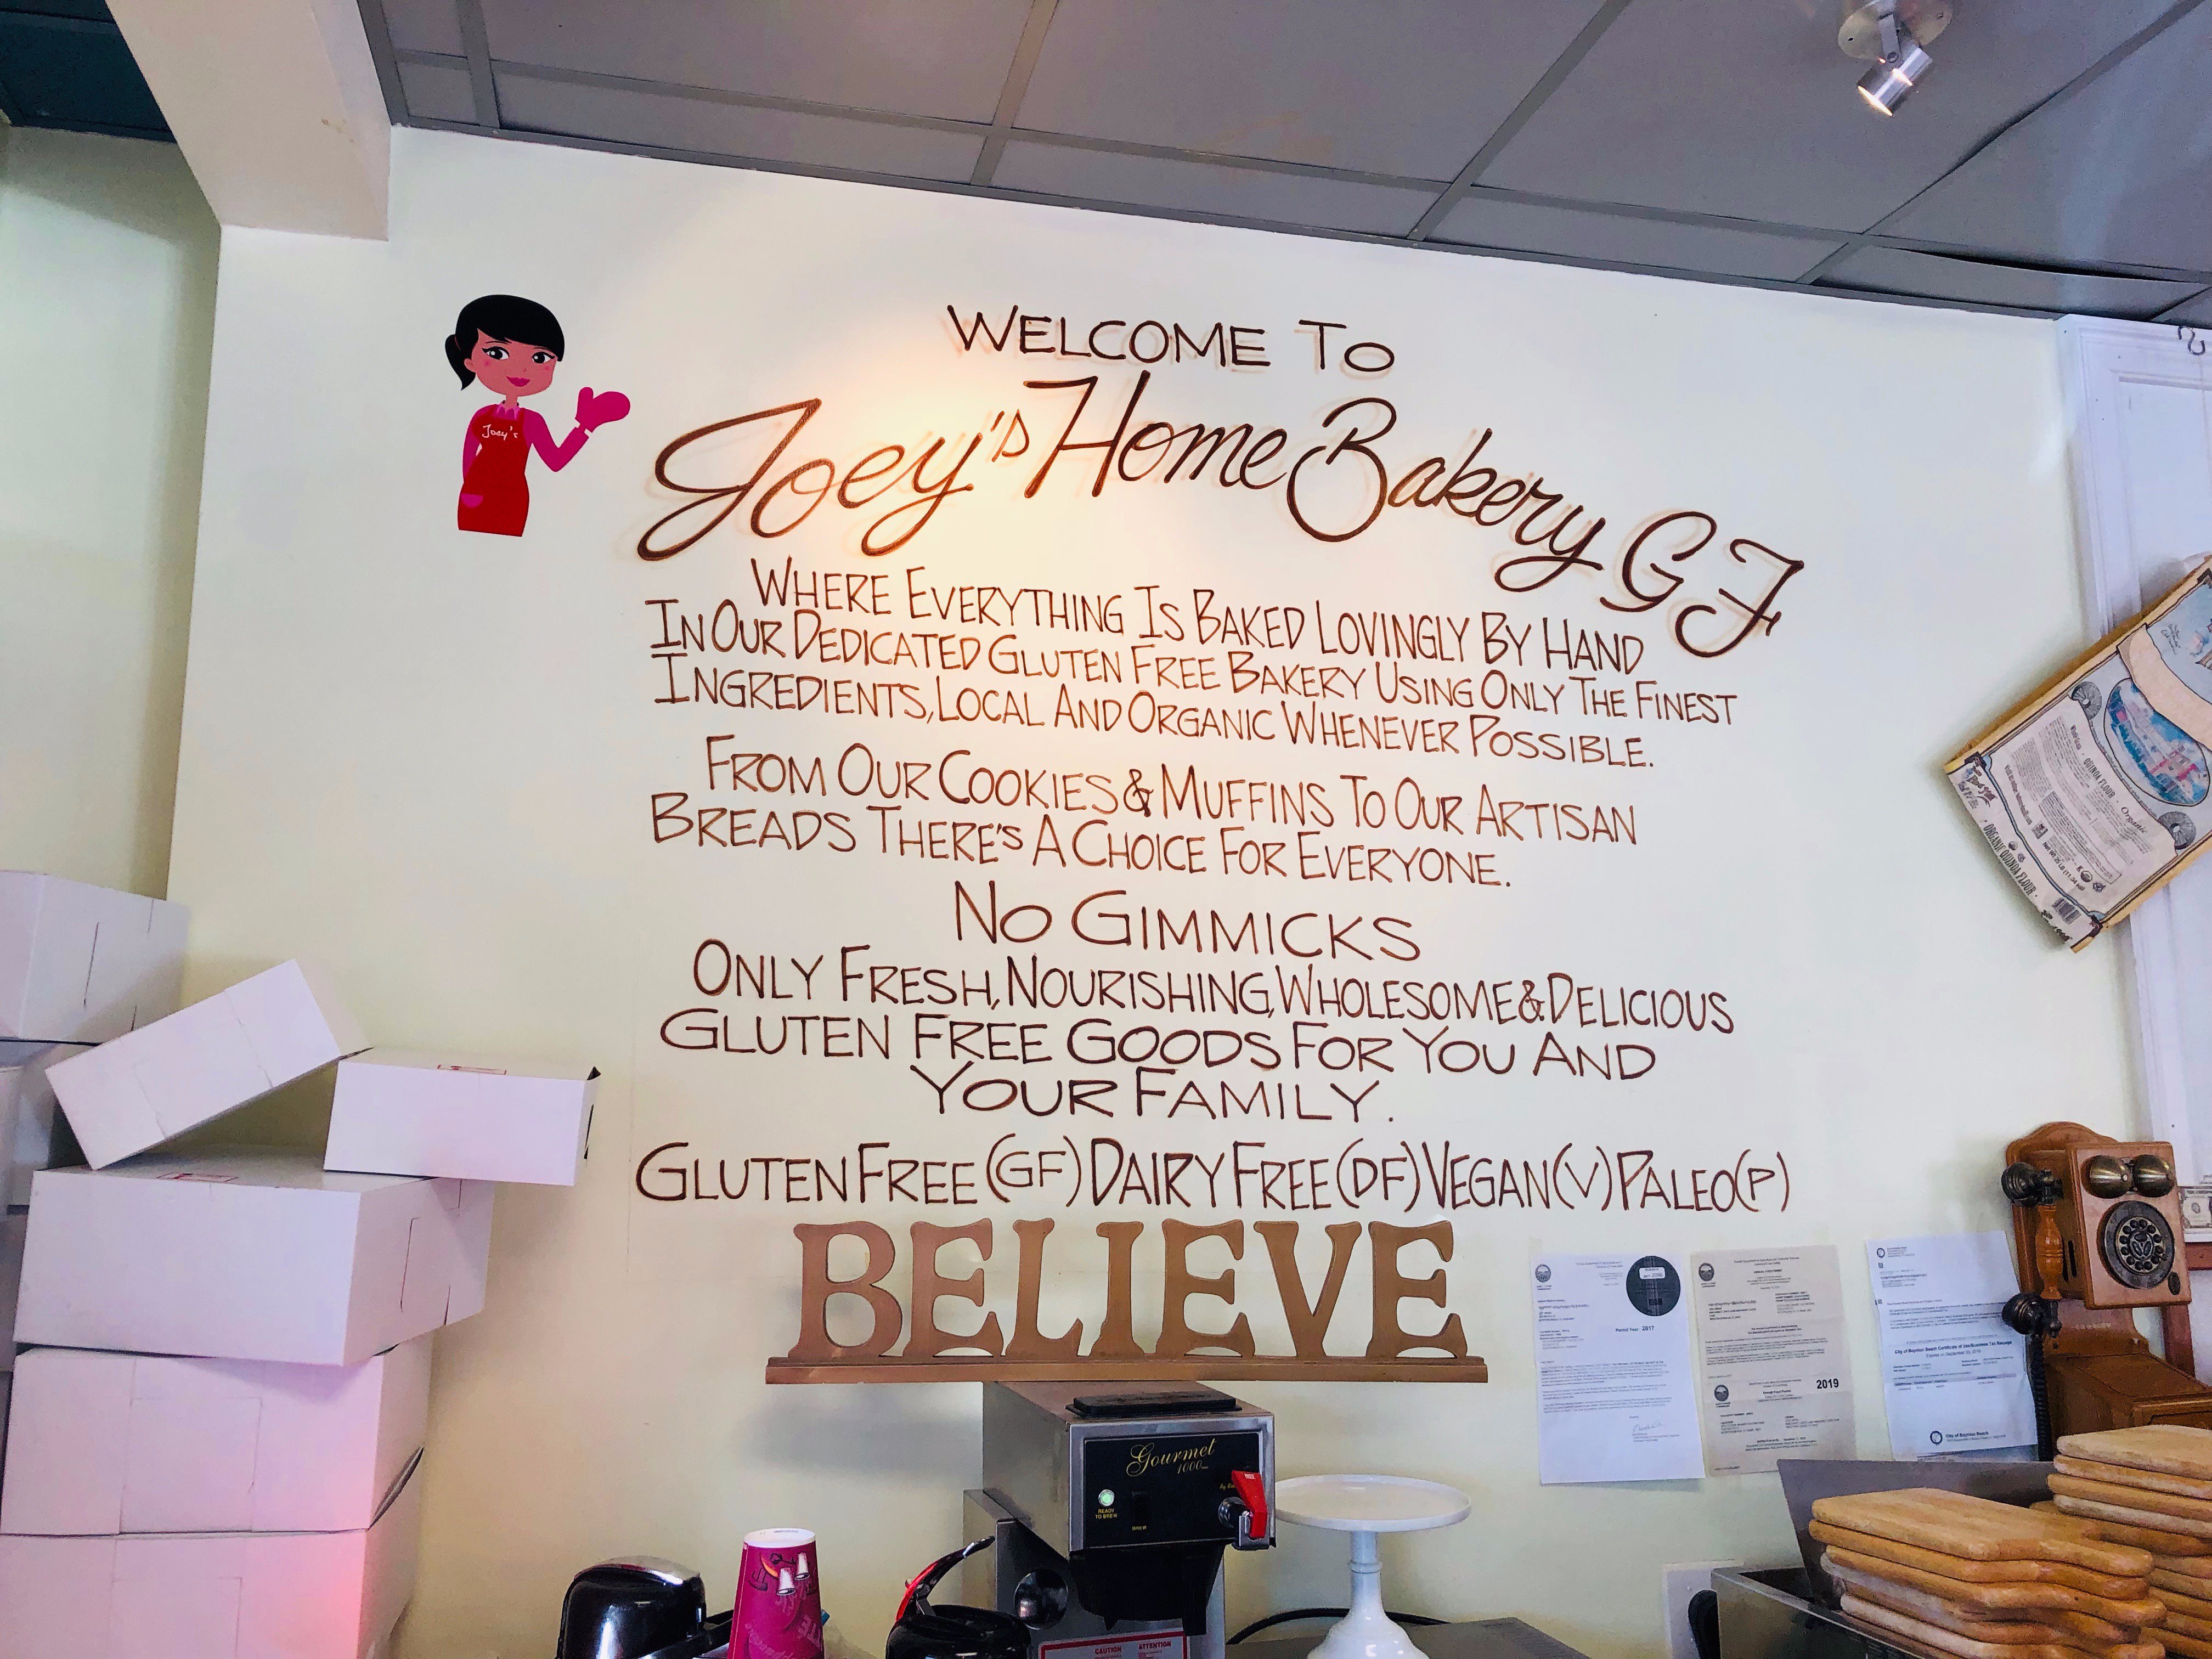 WELCOME TO
Joey's Home Bakery GF
WHERE EVERYTHING IS BAKED LOVINGLY BY HAND
IN OUR DEDICATED GLUTEN FREE BAKERY USING ONLY THE FINEST
INGREDIENTS, LOCAL AND ORGANIC WHENEVER POSSIBLE.
FROM OUR COOKIES & MUFFINS TO OUR ARTISAN
BREADS THERE'S A CHOICE FOR EVERYONE.
NO GIMMICKS
ONLY FRESH, NOURISHING, WHOLESOME & DELICIOUS
GLUTEN FREE GOODS FOR YOU AND
YOUR FAMILY.
GLUTEN FREE (GF) DAIRY FREE (DF) VEGAN (V) PALEO (P)
BELIEVE
Joey's
QUINOA FLOUR
Organic
ORGANIC QUINOA FLOUR
Permit Year 2017
2019
City of Boynton Beach Certificate of Use/Business Tax Receipt
City of Boynton Beach
Gourmet
1000
READY
TO BREW
CAUTION ATTENTION